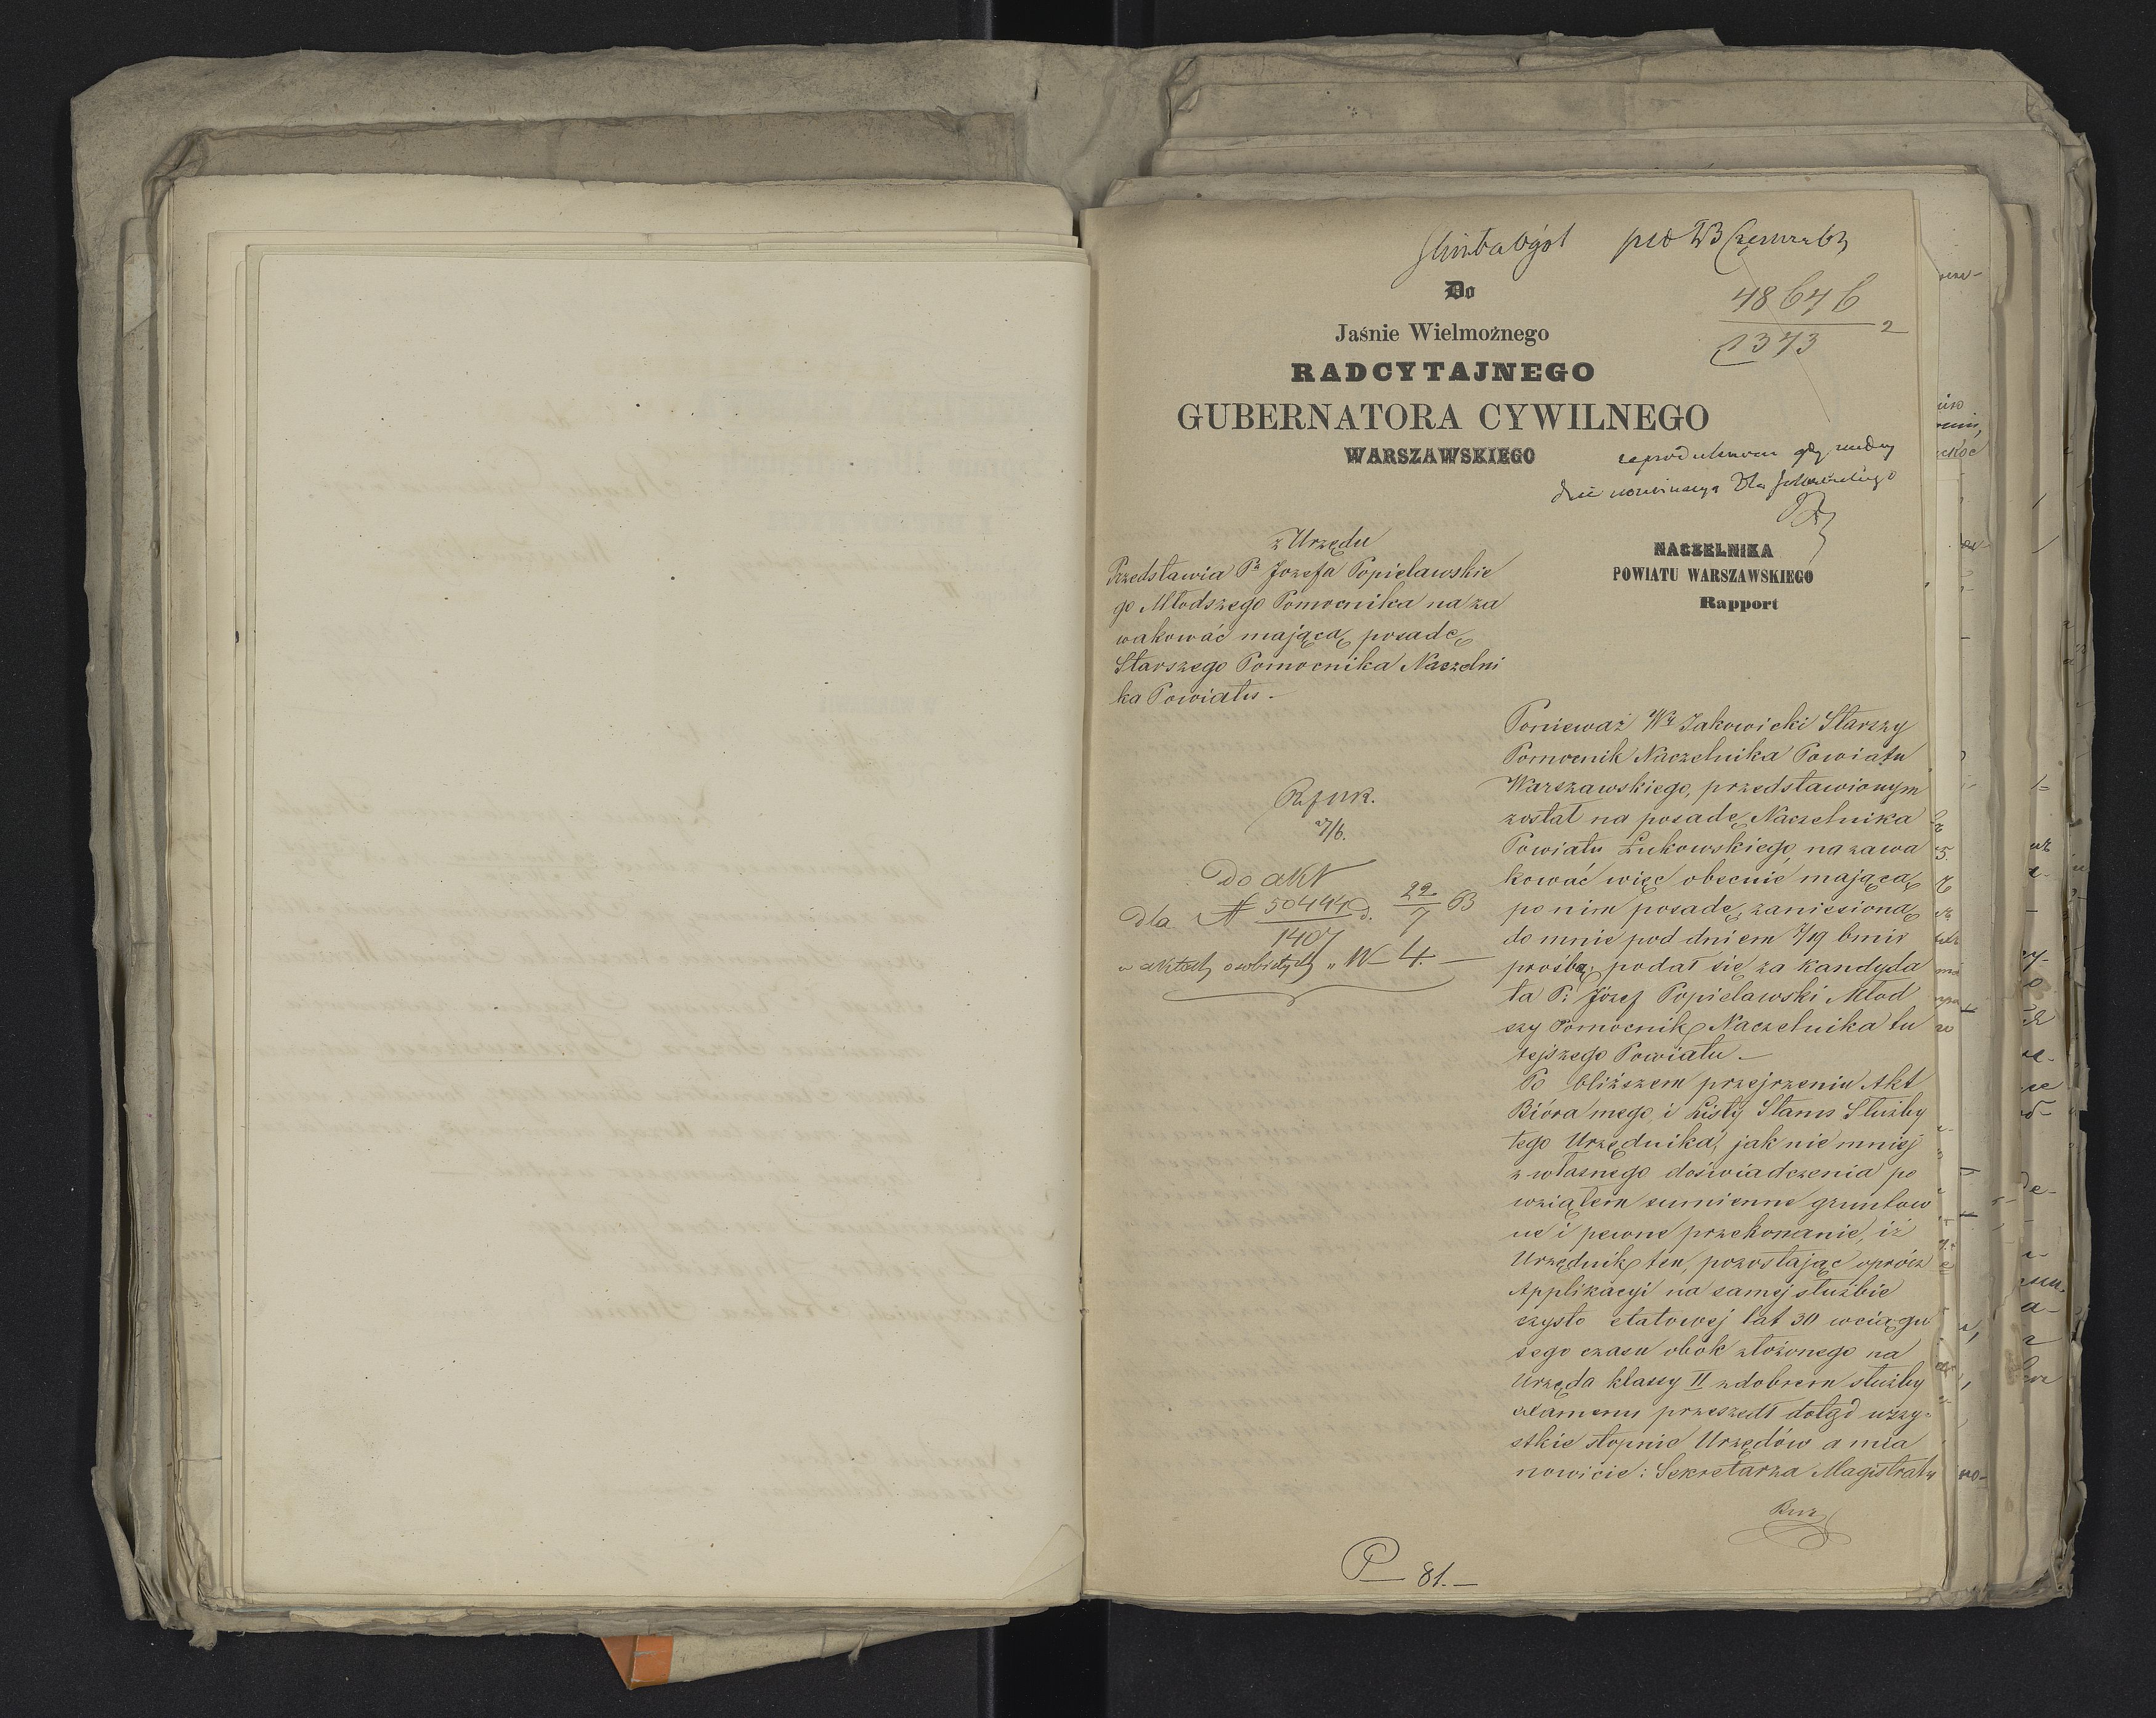 48646
1373
2
Do
Jaśnie Wielmożnego
RADCY TAJNEGO
GUBERNATORA CYWILNEGO
WARSZAWSKIEGO
z Urzędu
Przedstawia Pa Jozefa Popielawskie
go Młodszego Pomocnika na za
wakować mającą posadę
Starszego Pomocnika Naczelni
ka Powiatu.-
NACZELNIKA
POWIATU WARSZAWSKIEGO
Rapport
27/6.
Do akt
dla N 50494 d. 22/7 63
1407
w aktach osobistych „W 4.-
Ponieważ Wy Jakowicki Starszy
Pomocnik Naczelnika Powiatu
Warszawskiego, przedstawionym
został na posadę Naczelnika
Powiatu Łukowskiego, na zawa
kować więc obecnie mającą
po nim posadę, zaniesioną
do mnie pod dniem 7/19 bmir
prośbą, podał się za kandyda
ta P: Józef Popielawski Młod
szy Pomocnik Naczelnika tu
tejszego Powiatu.-
Po bliższem przejrzeniu Akt
Bióra mego i Listy Stanu Służby
tego Urzędnika, jak nie mniej
z własnego doświadczenia po
wziąłem sumienne gruntow
ne i pewne przekonanie, iż
Urzędnik ten, pozostając oprócz
Applikacyi na samej służbie
czysto etatowej lat 30 w ciągu
tego czasu obok złożonego na
Urzęda klassy II z dobrem służby
examenu przeszedł dotąd wszy-
stkie stopnie Urzędów a mia
nowicie: Sekretarza Magistratu
P 81.-